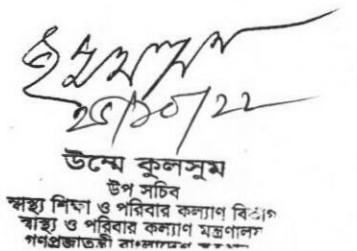 ২৫/১০/২২
উম্মে কুলসুম
উপ সচিব
স্বাস্থ্য শিক্ষা ও পরিবার কল্যাণ বিভাগ
স্বাস্থ্য ও পরিবার কল্যাণ মন্ত্রণালয়
গণপ্রজাতন্ত্রী বাংলাদেশ সরকার